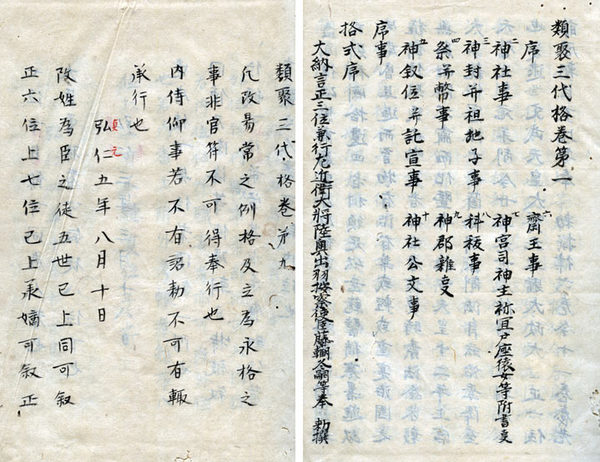 類聚三代格卷第一
序 六齋王事
二神社事 七神宮司神主祢宜戸座猿女等附書
三神封并租地子事 八科祓事
四祭并幣事 九神郡雜
五神叙位并託宣事 十神社公文事
序事
格式序
大納言正三位兼行左近衛大將陸奥出羽按察使臣藤冬嗣等奉 勅撰
類聚三代格卷第九
凡改易常之例格及立為永格之
事非官符不可得奉行也
内侍仰事若不有詔勅不可有輙
承行也
弘仁五年八月十日
改姓為臣之徒五世已上同可叙
正六位上七位已上承嫡可叙正